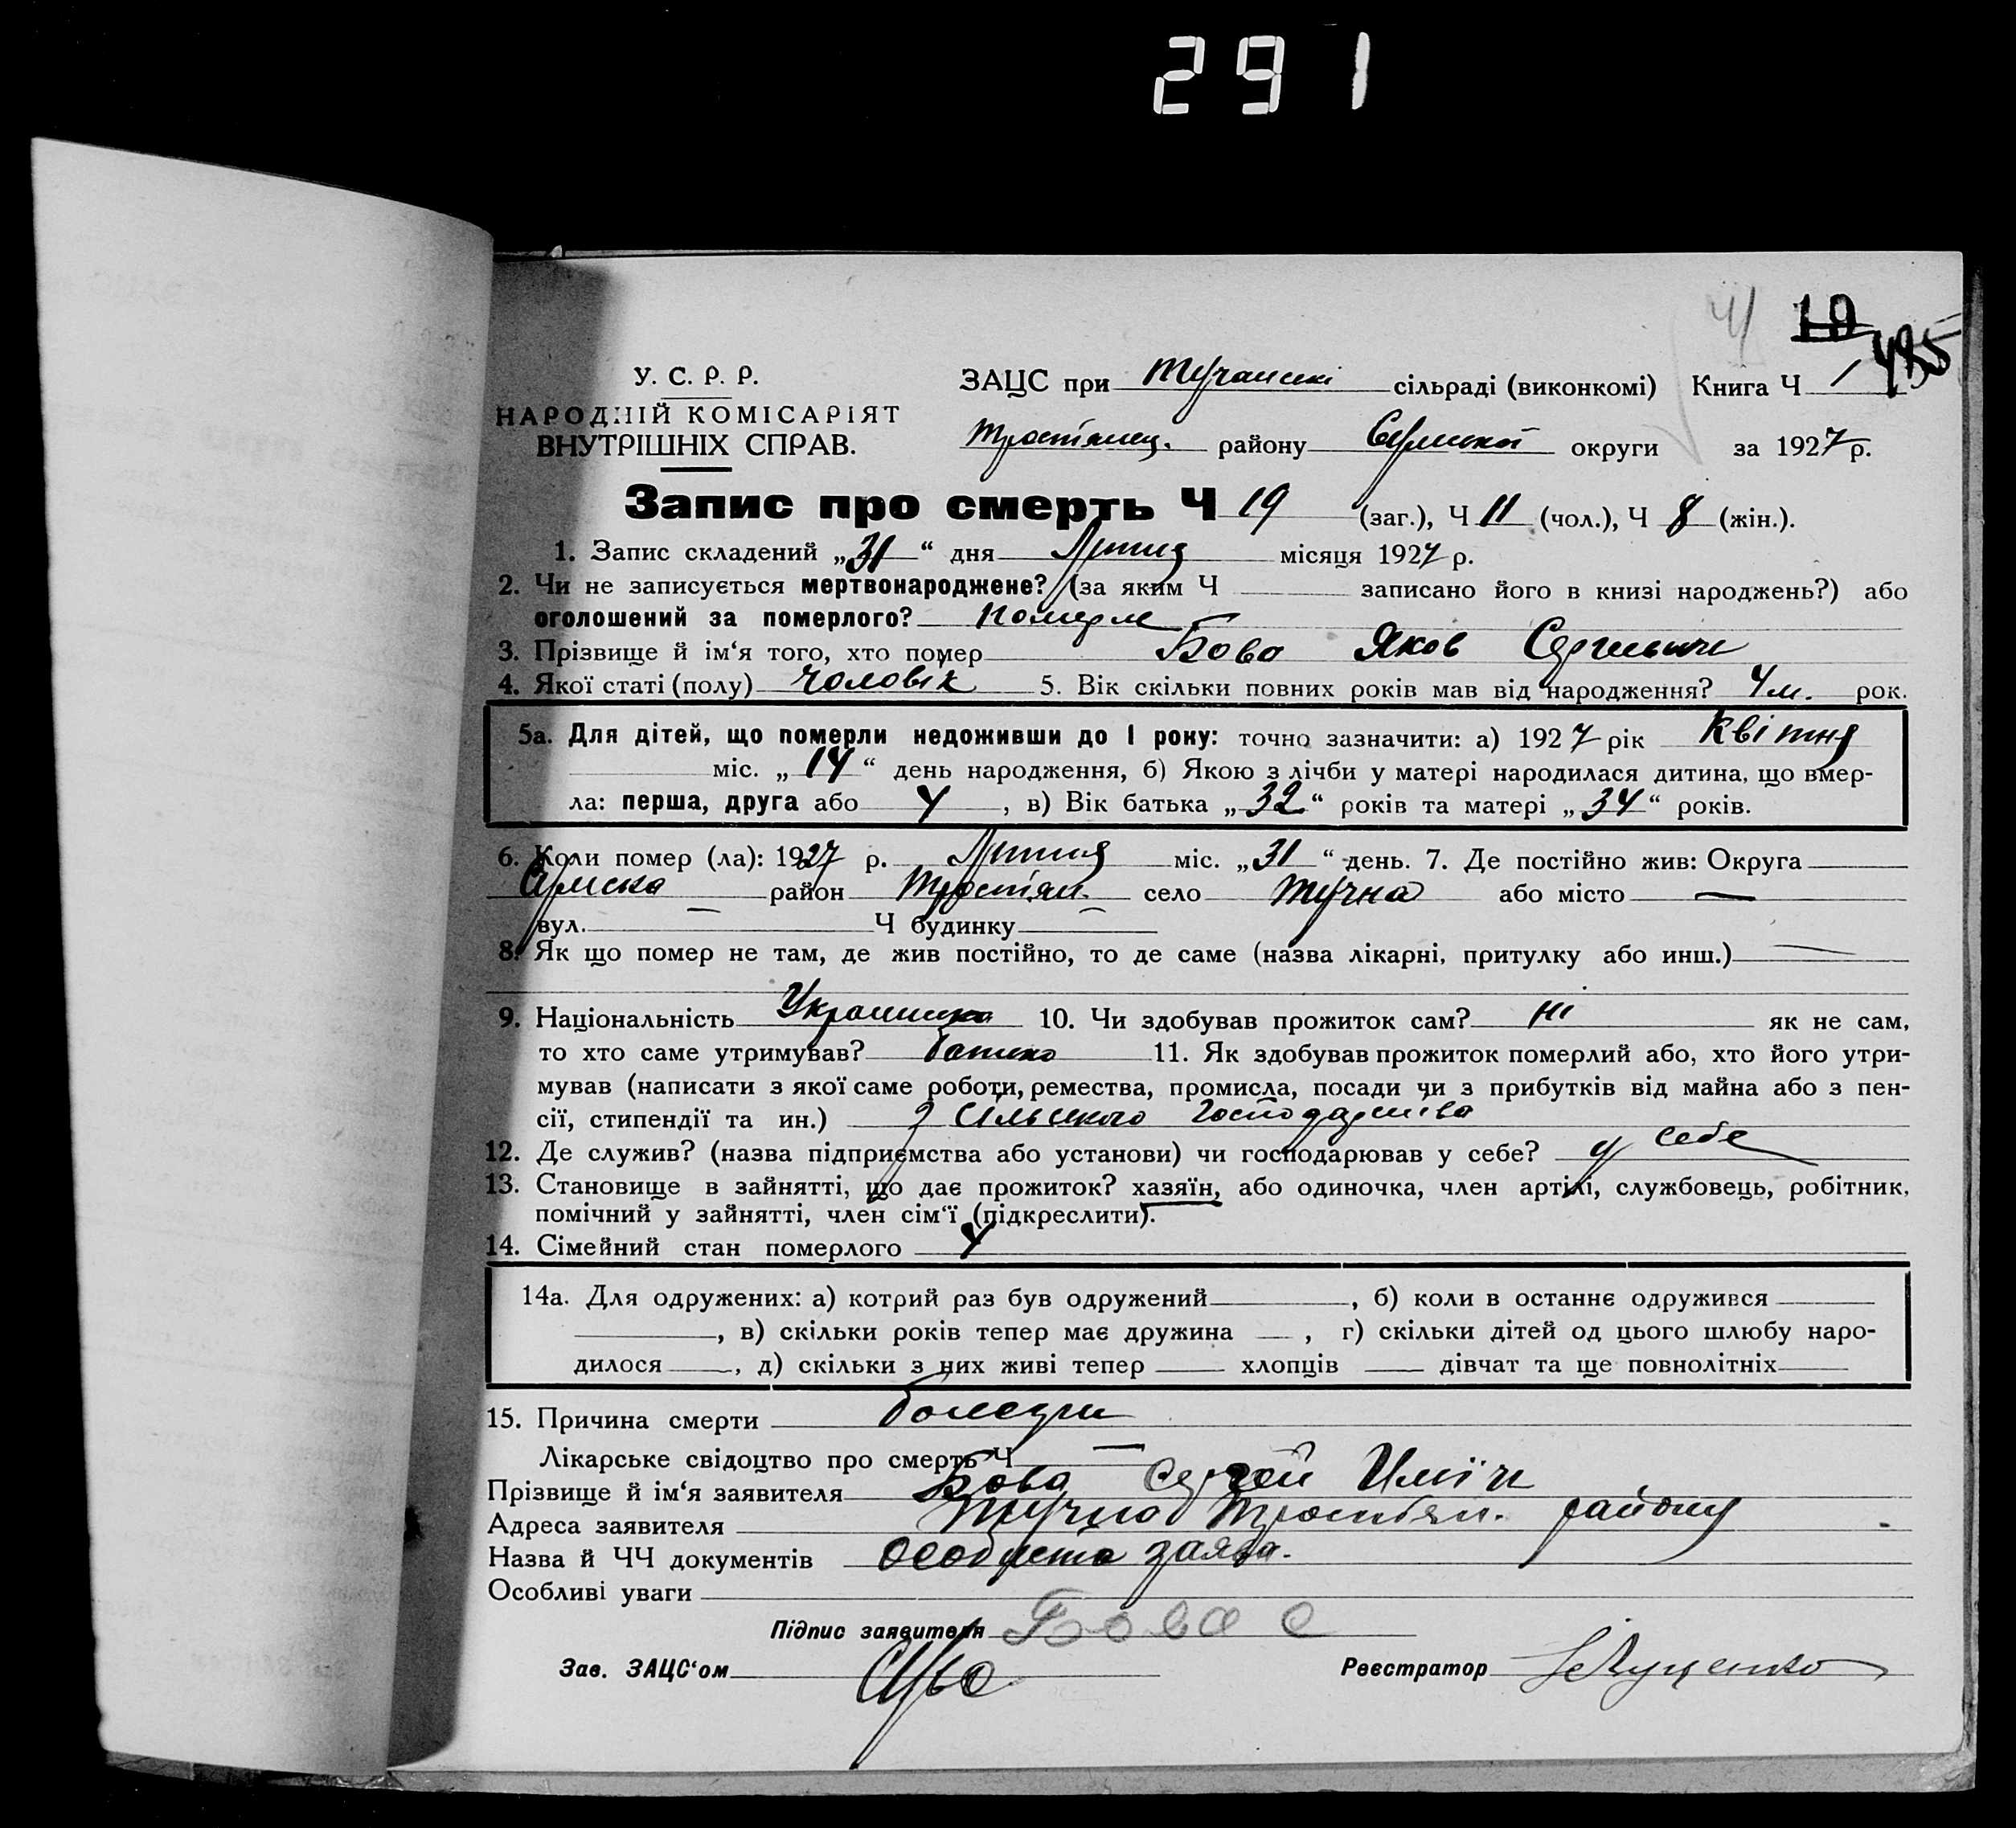 291
10
485
У. С. Р. Р.
НАРОДНІЙ КОМІСАРІЯТ
ВНУТРІШНІХ СПРАВ.
ЗАЦС при Тучанські сільраді (виконкомі) Книга Ч 1
Тростянец. району Сумської округи за 1927 р.
Запис про смерть Ч 19 (заг.), Ч 11 (чол.), Ч 8 (жін.).
1. Запис складений „31“ дня Липня місяця 1927 р.
2. Чи не записується мертвонароджене? (за яким Ч записано його в книзі народжень?) або
оголошений за померлого? померле
3. Прізвище й ім‘я того, хто помер Бова Яков Сергієвич
4. Якої статі (полу) чоловік 5. Вік скільки повних років мав від народження? 4 м. рок.
5а. Для дітей, що померли недоживши до 1 року: точно зазначити: а) 1927 рік Квітня
міс. „14“ день народження, б) Якою з лічби у матері народилася дитина, що вмер-
ла: перша, друга або 4, в) Вік батька „32“ років та матері „34“ років.
6. Коли помер (ла): 1927 р. Липня міс. „31“ день. 7. Де постійно жив: Округа
Сумська район Тростян. село Тучна або місто —
вул. — Ч будинку —
8. Як що помер не там, де жив постійно, то де саме (назва лікарні, притулку або инш.) —
9. Національність 10. Чи здобував прожиток сам? ні як не сам,
то хто саме утримував? батько 11. Як здобував прожиток померлий або, хто його утри-
мував (написати з якої саме роботи, ремества, промисла, посади чи з прибутків від майна або з пен-
сії, стипендії та ин.) з сільського господарства
12. Де служив? (назва підприємства або установи) чи господарював у себе? у себе
13. Становище в зайнятті, що дає прожиток? хазяїн, або одиночка, член артілі, службовець, робітник,
помічний у зайнятті, член сім‘ї (підкреслити).
14. Сімейний стан померлого 4
14а. Для одружених: а) котрий раз був одружений , б) коли в останнє одружився
, в) скільки років тепер має дружина , г) скільки дітей од цього шлюбу наро-
дилося , д) скільки з них живі тепер хлопців дівчат та ще повнолітніх
15. Причина смерти
Лікарське свідоцтво про смерть Ч —
Прізвище й ім‘я заявителя Бова Сергей
Адреса заявителя Тучна Тростян. району
Назва й ЧЧ документів Особиста заява.
Особливі уваги
Підпис заявителя Бова С
Зав. ЗАЦС‘ом
Реєстратор